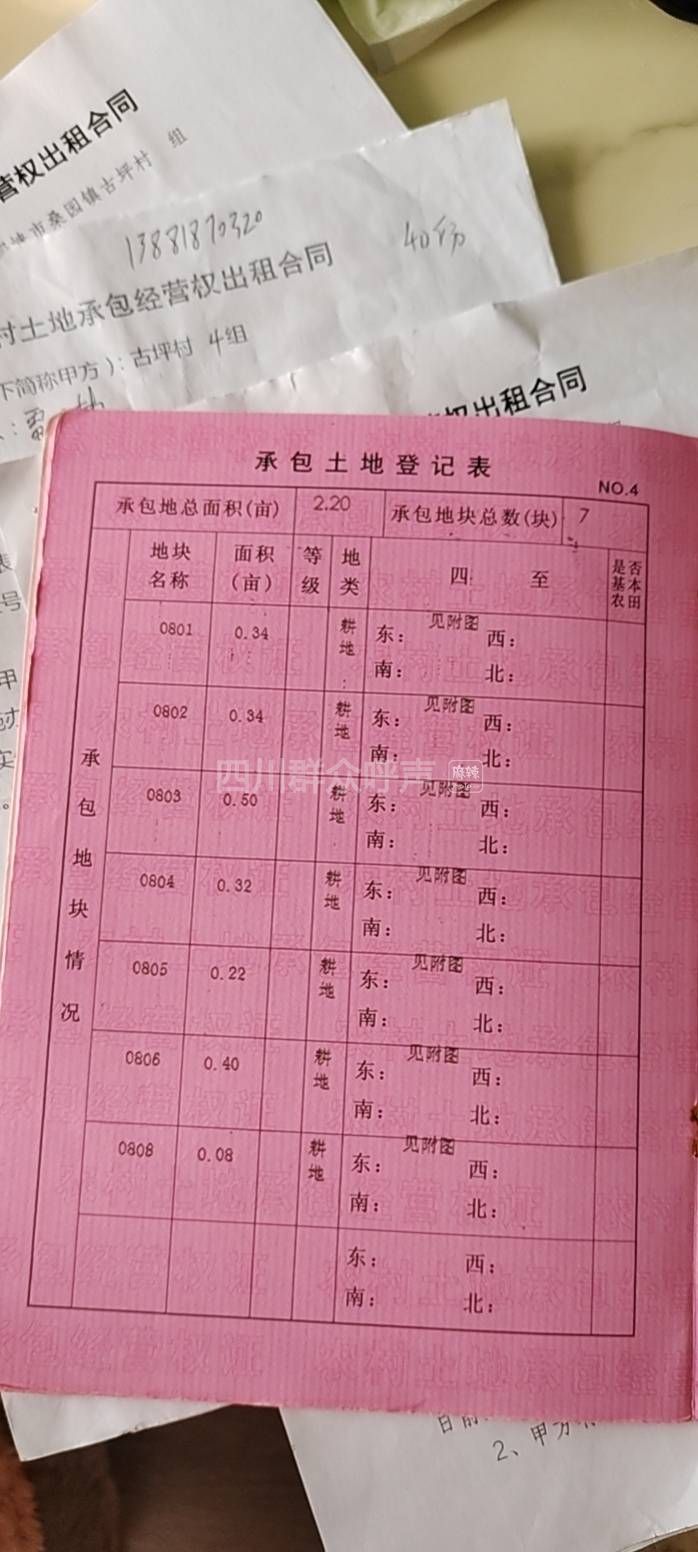 营权出租合同
市桑园镇古坪村 组
13881870320
40份
村土地承包经营权出租合同
下简称甲方）：古坪村 4组
权出租合同
承包土地登记表
NO.4
承包地总面积(亩) 2.20 承包地块总数(块) 7
地块名称 面积(亩) 等级 地类 四至 是否基本农田
承包地块情况
0801 0.34 耕地 东： 见附图 西：
南： 北：
0802 0.34 耕地 东： 见附图 西：
南： 北：
0803 0.50 耕地 东： 见附图 西：
南： 北：
0804 0.32 耕地 东： 见附图 西：
南： 北：
0805 0.22 耕地 东： 见附图 西：
南： 北：
0806 0.40 耕地 东： 见附图 西：
南： 北：
0808 0.08 耕地 东： 见附图 西：
南： 北：
东： 西：
南： 北：
四川群众呼声 麻辣
2、甲方